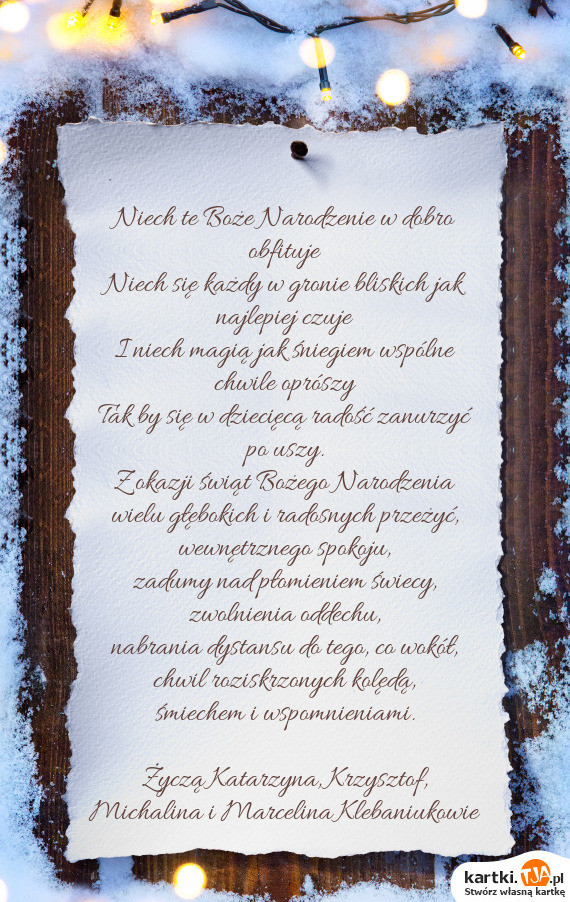 Niech te Boże Narodzenie w dobro
obfituje
Niech się każdy w gronie bliskich jak
najlepiej czuje
I niech magią jak śniegiem wspólne
chwile oprószy
Tak by się w dziecięcą radość zanurzyć
po uszy.
Z okazji świąt Bożego Narodzenia
wielu głębokich i radosnych przeżyć,
wewnętrznego spokoju,
zadumy nad płomieniem świecy,
zwolnienia oddechu,
nabrania dystansu do tego, co wokół,
chwil roziskrzonych kolędą,
śmiechem i wspomnieniami.
Życzą Katarzyna, Krzysztof,
Michalina i Marcelina Klebaniukowie
kartki.TJA.pl
Stwórz własną kartkę